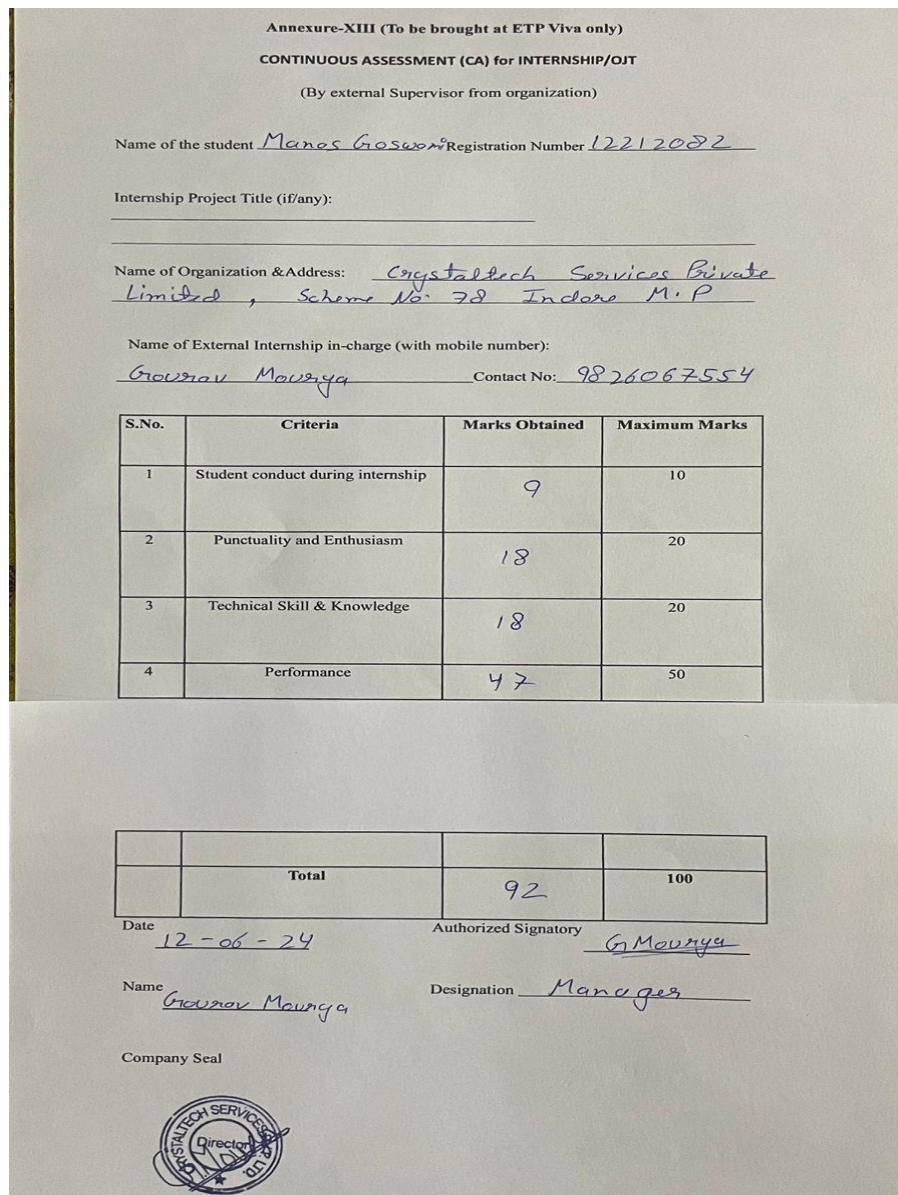 Annexure-XIII (To be brought at ETP Viva only)
CONTINUOUS ASSESSMENT (CA) for INTERNSHIP/OJT
(By external Supervisor from organization)
Name of the student Manos Goswami Registration Number 12212082
Internship Project Title (if/any):
Name of Organization &Address: Crystaltech Services Private
Limited, Scheme No. 78 Indore M.P
Name of External Internship in-charge (with mobile number):
Gourav Mourya Contact No: 9826067554
S.No. Criteria Marks Obtained Maximum Marks
1 Student conduct during internship 9 10
2 Punctuality and Enthusiasm 18 20
3 Technical Skill & Knowledge 18 20
4 Performance 47 50
Total 92 100
Date 12-06-24 Authorized Signatory G Mourya
Name Gourav Mourya Designation Manager
Company Seal
CRYSTALTECH SERVICES PVT. LTD.
Director